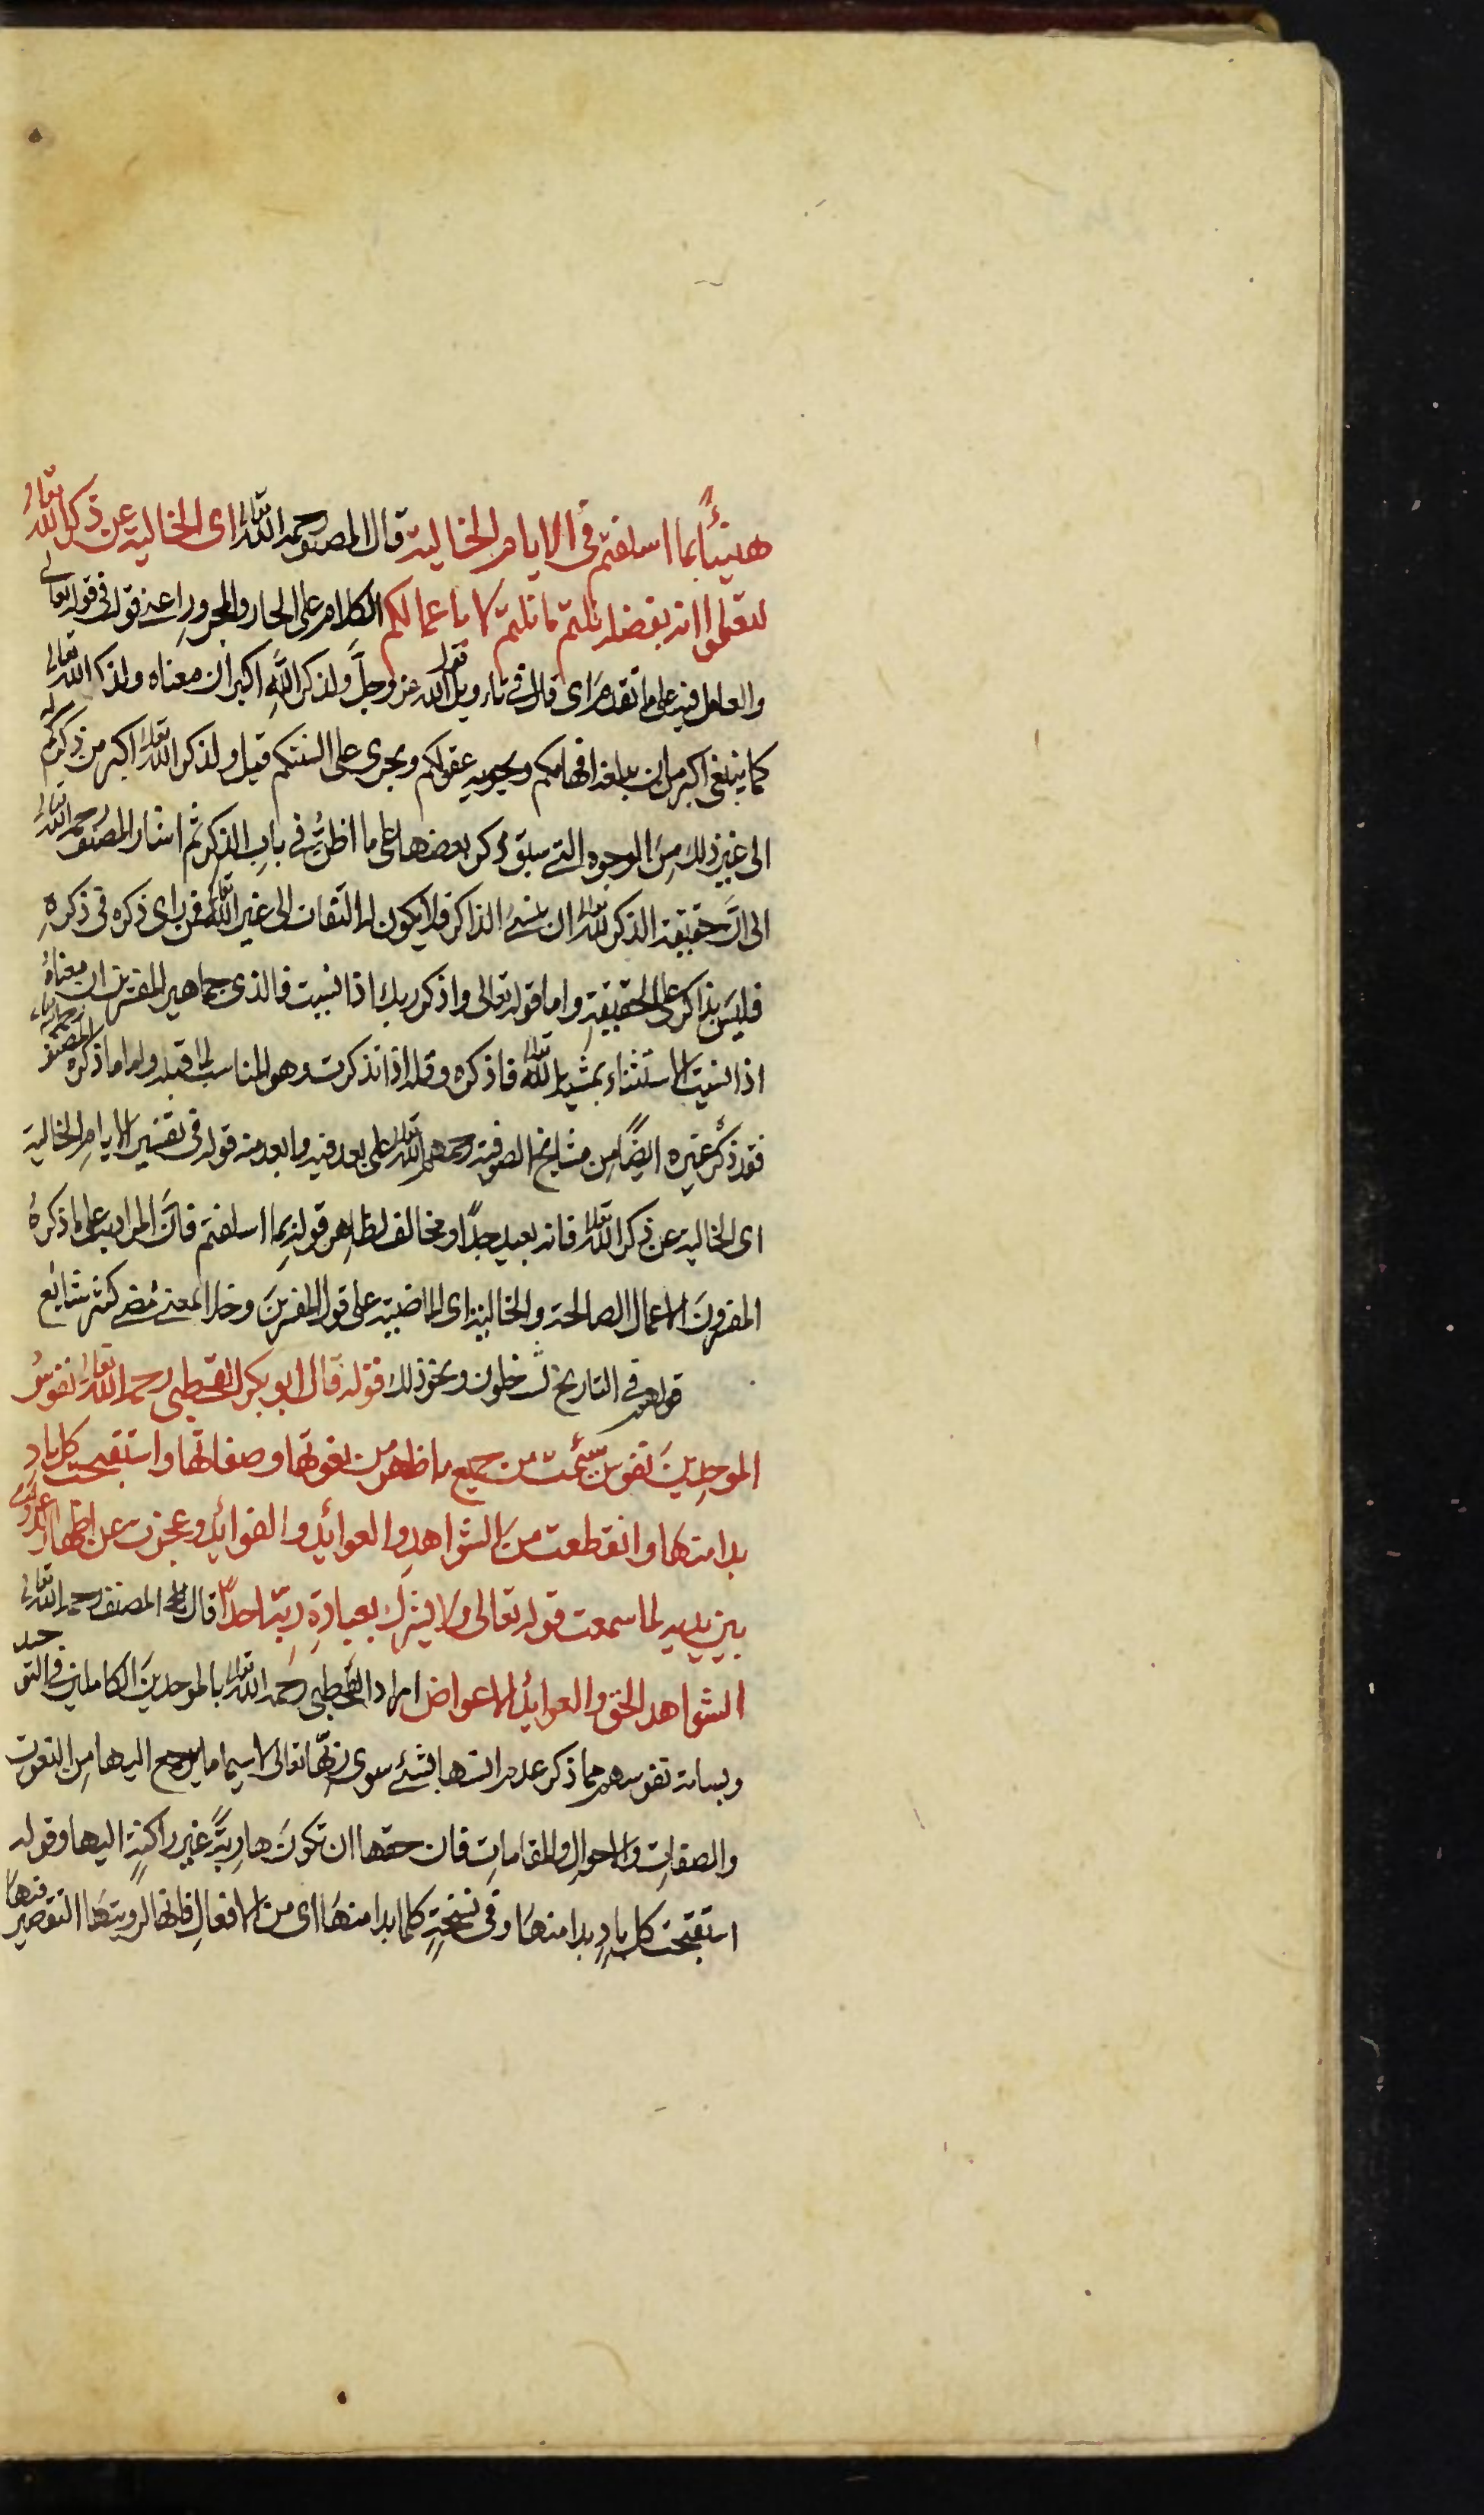 هنيئًا بما اسلفتم في الايام الخالية قال المصنف رحمه الله تعالى اى الخالية عن ذكر الله تعالى
لتعلموا انه بفضله نلتم ما نلتم لا باعمالكم الكلام على الجار والمجرور اعنى قوله فى قوله تعالى
والعامل فيه على ما تقدم اى قال فى تاويل قول الله عز وجلّ ولذكر اللهِ اكبر ان معناه ولذكر الله تعالى
كما ينبغى اكبر من ان يبلغه افهامكم ويحويه عقولكم ويجرى على السنتكم قيل ولذكر الله تعالى اكبر من ذكركم له
الى غير ذلك مِنَ الوجوه التى سبق ذكر بعضها على ما اظنُّ فى بابِ الذكر ثم اشار المصنف رحمه الله تعالى
الى انَّ حقيقة الذكر لله تعالى ان ينسىَ الذاكر فلا يكون له التفات الى غير الله تعالى فمن راى ذكره فى ذكرهِ
فليسَ بذاكر على الحقيقةِ واما قوله تعالى واذكر ربك اذا نسيت فالذى جماهير المفسرين ان معناهُ
اذا نسيت الاستثناء بمشية الله تعالى فاذكره وقله اذا تذكرت وهو المناسب لما قبله واما ما ذكره المصنف رحمه الله
فقد ذكرُ غيره ايضًا من مشايخ الصوفية رحمهم الله تعالى على بعد فيه وابعد منه قوله فى تفسير الايامِ الخالية
اى الخالية عن ذكر الله تعالى فانه بعيد جدًا ومخالف لظاهر قوله بِما اسلفتم فانَّ المراد به على ما ذكرهُ
المفسرونَ الاعمال الصالحة والخالية اى الماضية على قول المفسرينَ وخلا لمعنى مضى كثير شائع
قولهم فى التاريخ لثلاث خلون ونحو ذلك قوله قال ابو بكر القحطبى رحمه الله تعالى نفوسُ
الموحدينَ نفوس سئمت من جميع ما ظهر من نعوتها وصفاتها واستقبحت كل بادٍ
بدا منها وانقطعت من الشواهدِ والعوائدِ والفوائد وعجزت عن اظهار الدعوى
بين يديه لما سمعت قوله تعالى ولا يشرك بعبادةِ ربهٖ احدًا قال المصنف رحمه الله تعالى
الشواهد الخق والعوائد الاعواض اراد القحطبى رحمه الله تعالى بالموحدينَ الكاملين فى التوحيد
وبسامة نفوسهم مما ذكر عدم انسها بشئ سوى ربها تعالى لاسيما ما يرجع اليها مِن النعوت
والصفاتِ والاحوالِ والمقاماتِ فان حقها ان تكونَ هاربةً غير راكنةٍ اليها وقوله
استقبحت كل بادٍ بدا منها وفى نسخةٍ كلما بدا منها اى من الافعالِ فانها لرويتها التقصير فيها